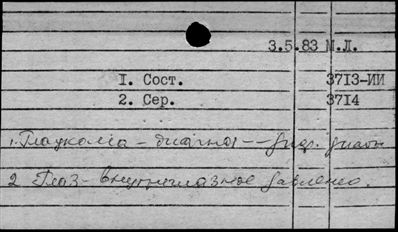 3.5.83 М.Л.
1. Сост. 3713-ИИ
2. Сер. 3714
1. Глаукома - диагноз - диф. диагн.
2 Глаз - внутриглазное давление.